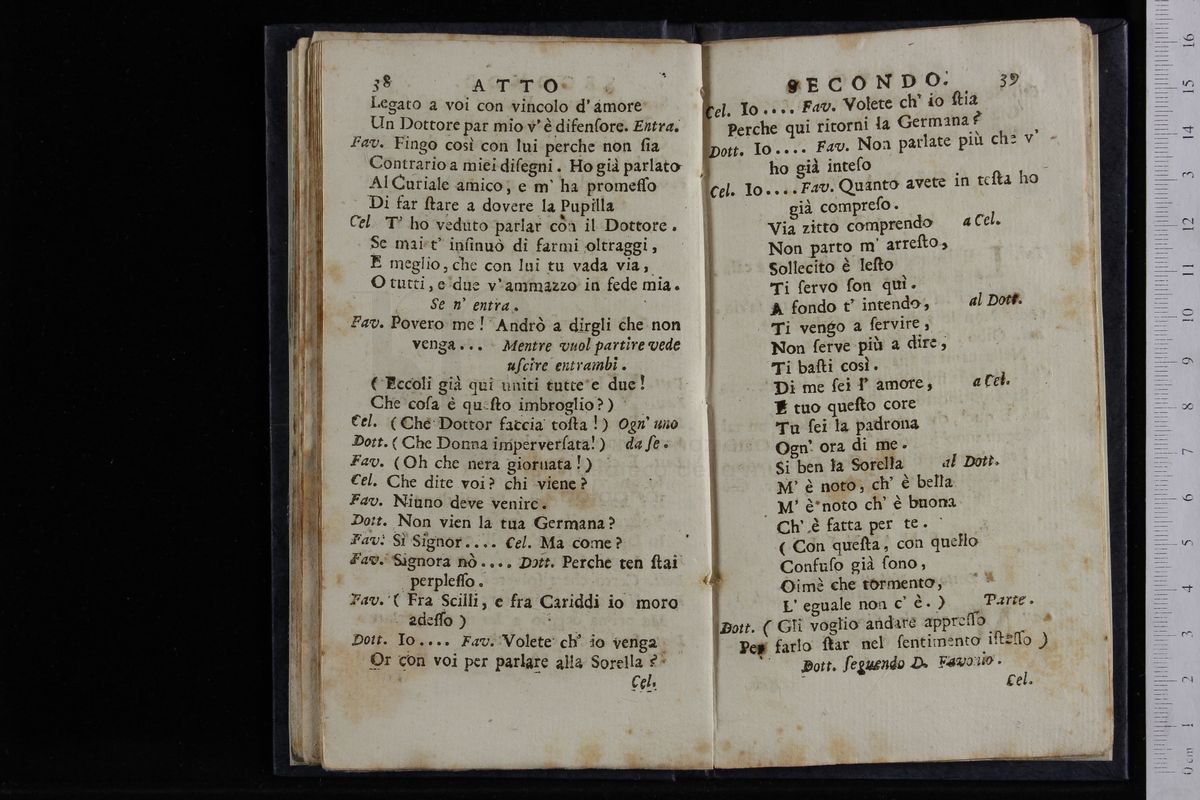 38 ATTO
Legato a voi con vincolo d' amore
Un Dottore par mio v' è difenſore. Entra.
Fav. Fingo così con lui perche non ſia
Contrario a miei diſegni. Ho già parlato
Al Curiale amico, e m' ha promeſſo
Di far ſtare a dovere la Pupilla
Cel T' ho veduto parlar con il Dottore.
Se mai t' inſinuò di farmi oltraggi,
E meglio, che con lui tu vada via,
O tutti, e due v' ammazzo in fede mia.
Se n' entra.
Fav. Povero me! Andrò a dirgli che non
venga... Mentre vuol partire vede
uſcire entrambi.
(Eccoli già qui uniti tutte e due!
Che coſa è queſto imbroglio?)
Cel. (Che Dottor faccia toſta!) Ogn' uno
Dott. (Che Donna imperverſata!) da ſe.
Fav. (Oh che nera giornata!)
Cel. Che dite voi? chi viene?
Fav. Niuno deve venire.
Dott. Non vien la tua Germana?
Fav. Sì Signor.... Cel. Ma come?
Fav. Signora nò.... Dott. Perche ten ſtai
perpleſſo.
Fav. (Fra Scilli, e fra Cariddi io moro
adeſſo)
Dott. Io.... Fav. Volete ch' io venga
Or con voi per parlare alla Sorella?
Cel.
SECONDO. 39
Cel. Io.... Fav. Volete ch' io ſtia
Perche qui ritorni la Germana?
Dott. Io.... Fav. Non parlate più che v'
ho già inteſo
Cel. Io.... Fav. Quanto avete in teſta ho
già compreſo.
Via zitto comprendo a Cel.
Non parto m' arreſto,
Sollecito è leſto
Ti ſervo ſon quì.
A fondo t' intendo, al Dott.
Ti vengo a ſervire,
Non ſerve più a dire,
Ti baſti così.
Di me ſei l' amore, a Cel.
E tuo queſto core
Tu ſei la padrona
Ogn' ora di me.
Si ben la Sorella al Dott.
M' è noto, ch' è bella
M' è noto ch' è buona
Ch' è fatta per te.
(Con queſta, con quello
Confuſo già ſono,
Oimè che tormento,
L' eguale non c' è.) Parte.
Dott. (Gli voglio andare appreſſo
Per farlo ſtar nel ſentimento iſteſſo)
Dott. ſeguendo D. Favonio.
Cel.
0 cm 1 2 3 4 5 6 7 8 9 10 11 12 13 14 15 16